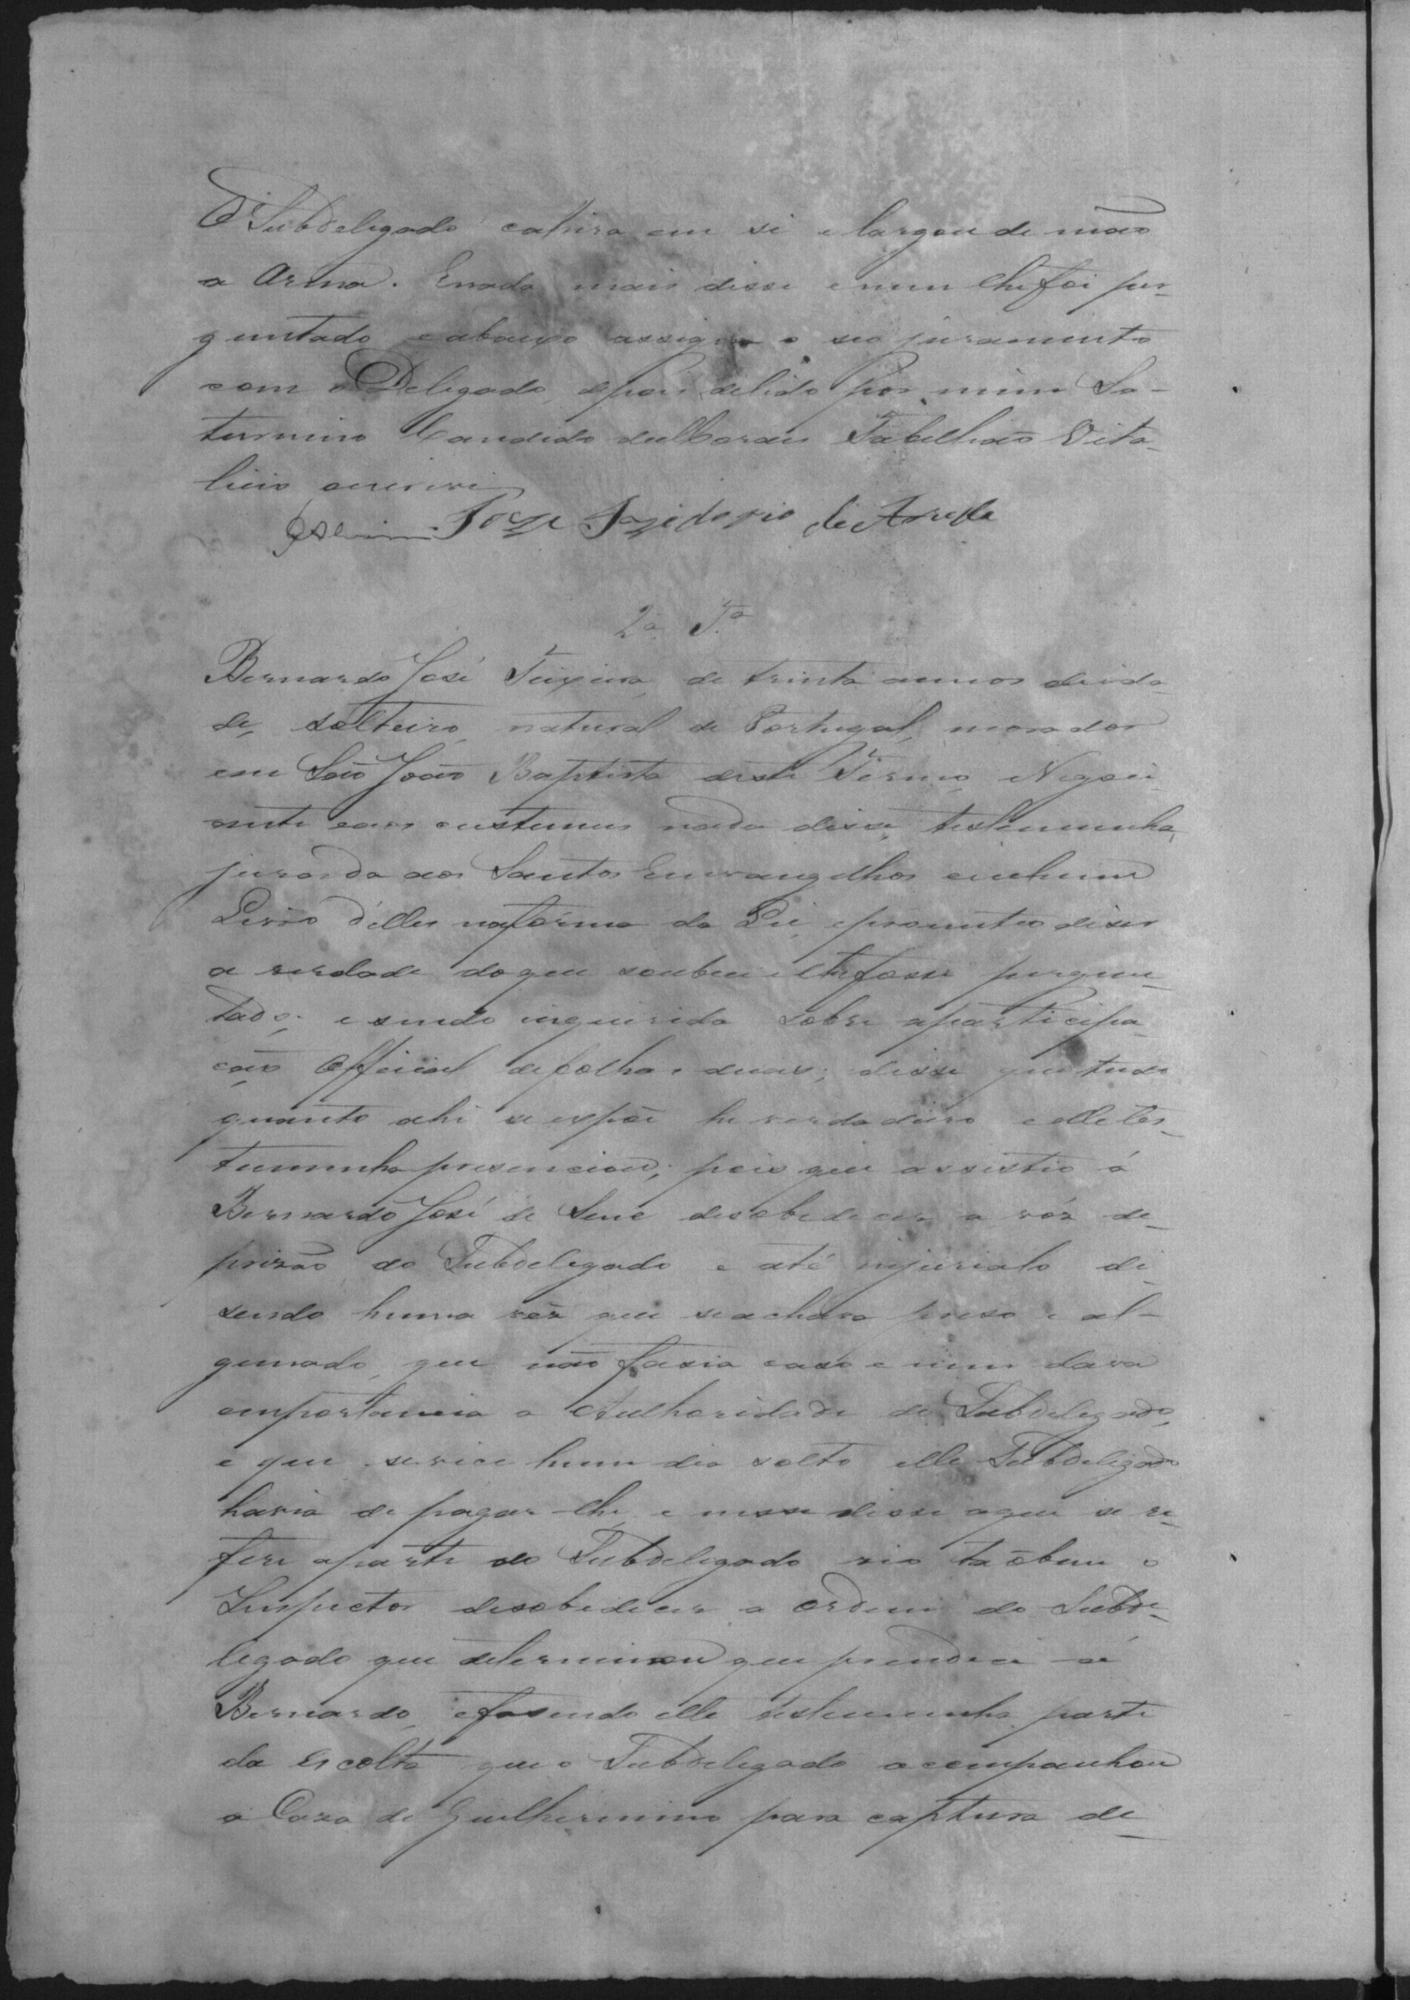 O Subdelegado cahira em si e largou de mão
a Arma. Enada mais disse e nem lhe foi per-
guntado e abaixo assigna o seo juramento
com o Delegado, depois de lido por mim Sa-
turnino Candido de Moraes Tabelhão Vita-
licio escrevi
José Izidorio de Arruda
2ª Tª
Bernardo José Teixeira, de trinta annos deida-
de, solteiro, natural de Portugal, morador
em São João Baptista deste Termo, Negoci-
ante eaos custumes nada disse, testemunha
jurada aos Santos Euvangelhos em hum
Livro d'elles naforma da Lei, eprometeo diser
a verdade doque soubesse e lhefosse pergun-
tado; e sendo inquirida sobre aparticipa-
ção Official defolhas duas; disse que tudo
quanto ahi se expõe he verdadeiro e elle tes-
temunha presenciou; pois que assistio á
Bernardo José de Sene desobedecer a vóz de-
prizão do Subdelegado e até injurialo di-
sendo huma vez que seachava preso e al-
gemado, que não fasia caso e nem dava
emportancia a Authoridade do Subdelegado,
e que se visse hum dia solto elle Subdelegado
havia de pagar-lhe, e nessa disse aque se re-
fere aparte do Subdelegado vio tãobem o
Inspector desobedecer a ordem do Subde-
legado que determinou que prendece-se
Bernardo, efasendo elle testemunha parte
da escolta que o Subdelegado acompanhou
a Caza de Guilhermino para captura de-